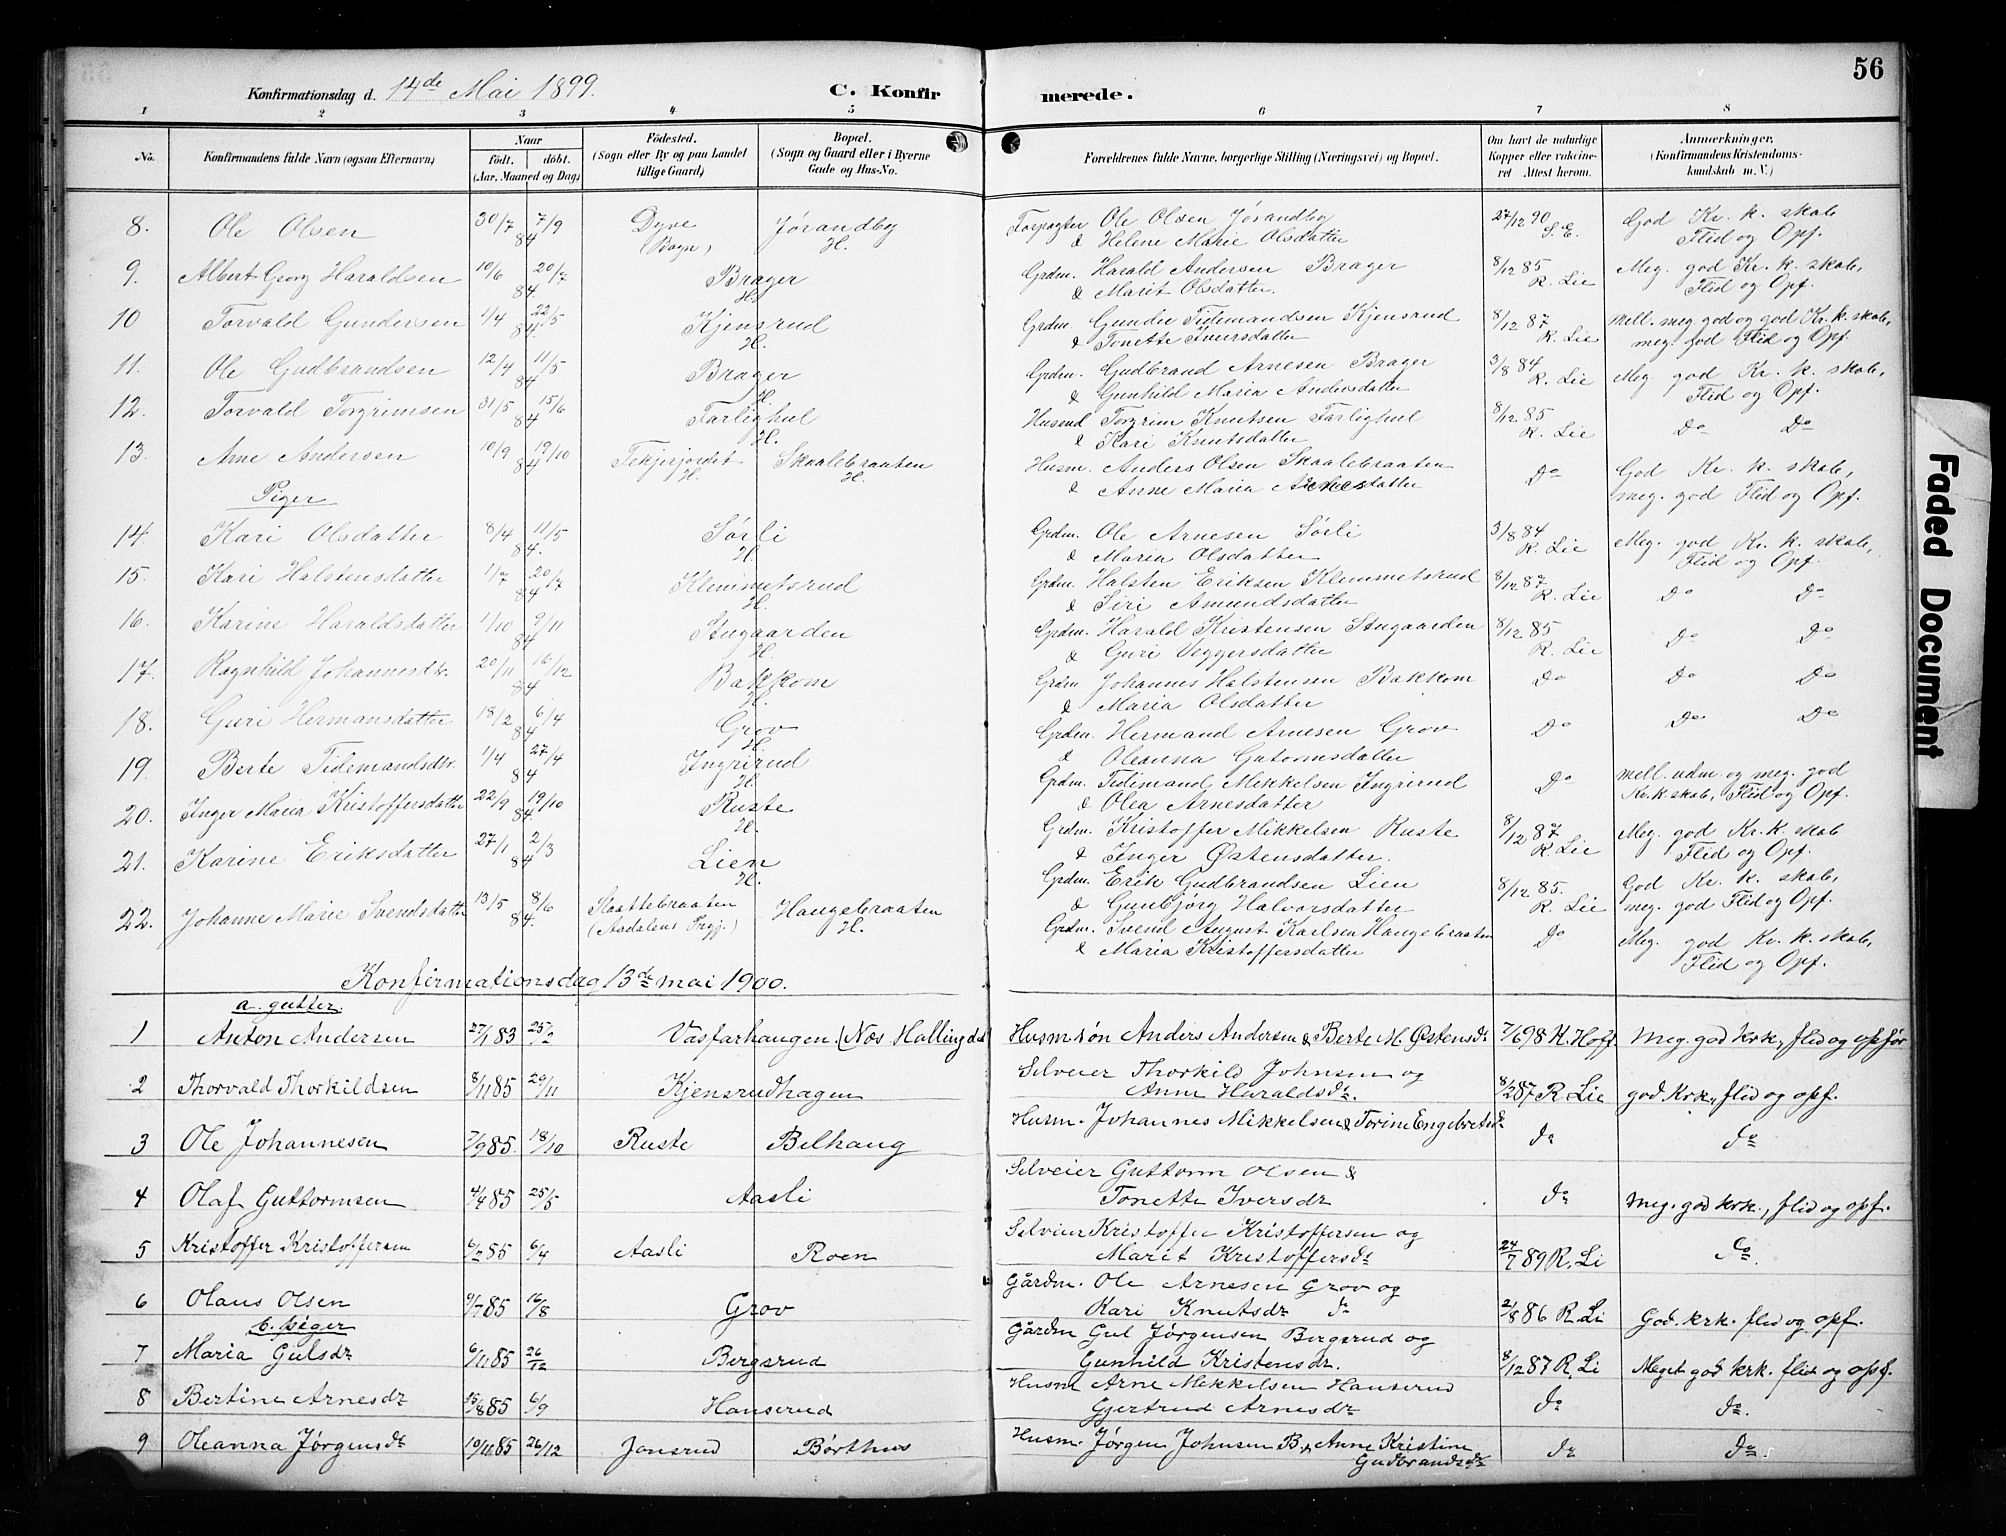 56
Konfirmationsdag d. 14de Mai 1899.
C. Konfirmerede.
1 2 3 4 5 6 7 8
No.
Konfirmandens fulde Navn (ogsaa Efternavn)
Naar
födt. döbt.
(Aar, Maaned og Dag)
Födested.
(Sogn eller By og paa Landet
tillige Gaard)
Bopæl.
(Sogn og Gaard eller i Byerne
Gade og Hus-No.
Forældrenes fulde Navne, borgerlige Stilling (Næringsvei) og Bopæl.
Om havt de naturlige
Kopper eller vakcine-
ret Attest herom.
Anmerkninger,
(Konfirmandens Kristendoms-
kundskab m. V.)
8. Ole Olsen 30/7 7/9 84 Dyve (Bagn) Jørandby H. Forpagter Ole Olsen Jørandby 27/12 90 S. E. God Kr. k. skab
& Helene Marie Olsdatter Flid og Opf.
9. Albert Georg Haraldsen 10/6 20/7 84 Brager H. Grdm. Harald Andersen Brager 8/12 85 R. Lie Meg. god Kr. k. skab,
& Marit Olsdatter. Flid og Opf.
10 Torvald Gundersen 1/4 22/5 84. Kjensrud H. Grdm. Gunder Tidemandsen Kjensrud 8/12 87 R. Lie Mell. meg. god og god Kr. k. skab,
& Tonette Iversdatter meg. god Flid og Opf.
11. Ole Gudbrandsen 12/4 11/5 84 Brager H. Grdm. Gudbrand Arnesen Brager 3/8 84 R. Lie Meg. god Kr. k. skab,
& Gunhild Maria Andersdatter Flid og Opf.
12. Torvald Torgrimsen 31/5 15/6 84 Farlighul H. Husmd Torgrim Knutsen Farlighul 8/12 85 R. Lie Do Do
& Kari Knutsdatter
13. Arne Andersen 10/9 19/10 84 Tekjerjordet H. Skaalebraaten H. Husm. Anders Olsen Skaalebraaten Do God Kr. k. skab,
& Anne Maria Arnesdatter meg. god Flid og Opf.
Piger
14. Kari Olsdatter 8/4 11/5 84. Sørli H. Grdm. Ole Arnesen Sørli 3/8 84 R. Lie Meg. god Kr. k. skab,
& Maria Olsdatter Flid og Opf.
15. Kari Halstensdatter 1/7 20/7 84 Klemmetsrud H. Grdm. Halsten Eriksen Klemmetsrud 8/12 87 R. Lie Do Do
& Siri Amundsdatter
16. Karine Haraldsdatter 1/10 9/11 84 Stugaarden H. Grdm. Harald Kristensen Stugaarden 8/12 85 R. Lie Do Do
& Guri Veggersdatter
17. Ragnhild Johannesdtr. 20/11 16/12 84 Bakkom H. Grdm. Johannes Halstensen Bakkom Do Do Do
& Maria Olsdatter
18. Guri Hermansdatter 18/2 6/4 84 Grov H. Grdm. Hermand Arnesen Grov Do Do Do
& Oleanna Gutormsdatter
19. Berte Tidemandsdtr. 1/4 27/4 84 Ingrirud H. Grdm. Tidemand Mikkelsen Ingrirud Do Mell. udm. og meg. god
& Olea Arnesdatter Kr. k. skab, Flid og Opf.
20. Inger Maria Kristoffersdatter 22/9 19/10 84 Ruste H. Grdm. Kristoffer Mikkelsen Ruste 8/12 87 R. Lie Meg. god Kr. k. skab
& Inger Østensdatter. Flid og Opf.
21. Karine Eriksdatter 27/1 2/3 84 Lien H. Grdm. Erik Gudbrandsen Lien 8/12 85. R. Lie God Kr. k. skab,
& Gunbjørg Halvorsdatter meg. god Flid og Opf.
22. Johanne Marie Svendsdatter 13/5 8/6 84. Slaattebraaten (Aasdalens Prgj.) Haugebraaten H. Grdm. Svend August Karlsen Haugebraaten Do Meg. god Kr. k. skab,
& Maria Kristoffersdatter Flid og Opf.
Konfirmationsdag 13de mai 1900.
a. gutter.
1 Anton Andersen 27/1 83 25/2 Vasfarhaugen (Næs Hallingdal Husm.søn Anders Andersen & Berte M. Østensdr 7/6 98 H. Hoff Meg. god krk., flid og opfør
2 Thorvald Thorkildsen 8/11 85 29/11 Kjensrudhagen Selveier Thorkild Johnsen og 8/12 87 R. Lie god krk., flid og opf.
Anne Haraldsdr.
3 Ole Johannesen 7/9 85. 18/10 Ruste Belhaug Husm. Johannes Mikkelsen & Torine Engebretsd do do
4 Olaf Guttormsen 4/4 85 25/5 Aasli Selveier Guttorm Olsen & do Meg. god krk., flid og opf.
Tonette Iversdr
5 Kristoffer Kristoffersen 6/2 85 6/4 Aasli Roen Selvier Kristoffer Kristoffersen og 24/7 89 R. Li Do
Marit Kristoffersdr
6 Olaus Olsen 9/7 85 16/8 Grov Gårdm. Ole Arnesen Grov og 2/8 86 R. Li God. krk. flid og opf.
Kari Knutsdr do
b. piger
7 Maria Gulsdr 6/11 85 26/12 Bergsrud Gårdm Gul Jørgensen Bergsrud og 8/12 87 R. Li Meget god krk. flid og opf.
Gunhild Kristensdr.
8 Bertine Arnesdr 15/8 85 6/9 Hanserud Husm Arne Mikkelsen Hanserud do do.
Gjertrud Arnesdr
9 Oleanna Jørgensdr 19/11 85 26/12 Jonsrud Børthus Husm. Jørgen Johnsen B. & Anne Kristine do do.
Gudbrandsdr
Faded Document